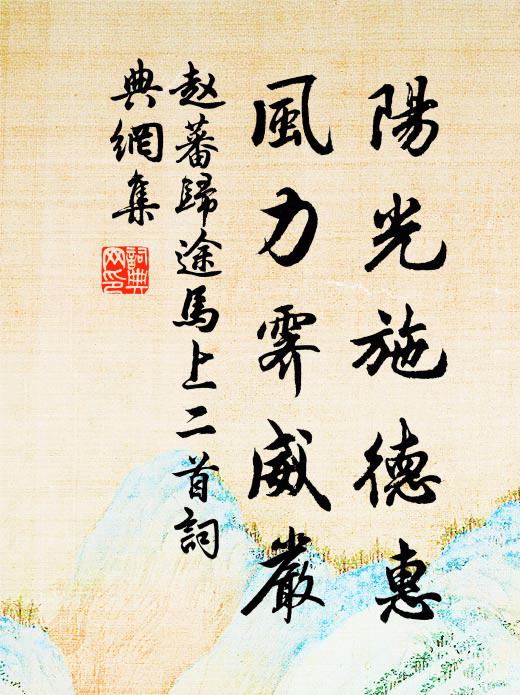 陽光施德惠
風力霽威嚴
赵蕃歸途馬上二首詞
典網集
詞典網印